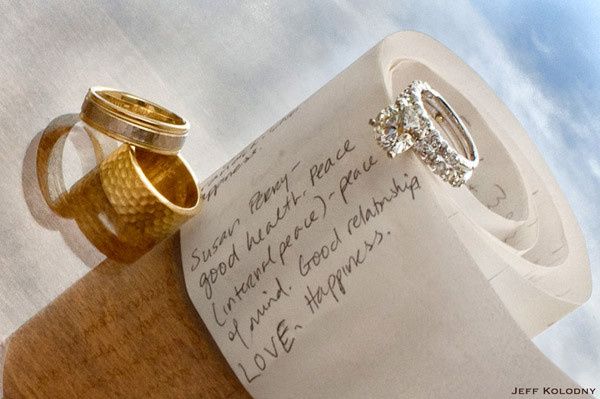 Susan Perry-
good health. Peace
(internal peace) - peace
of mind. Good relationship
LOVE. Happiness.
JEFF KOLODNY